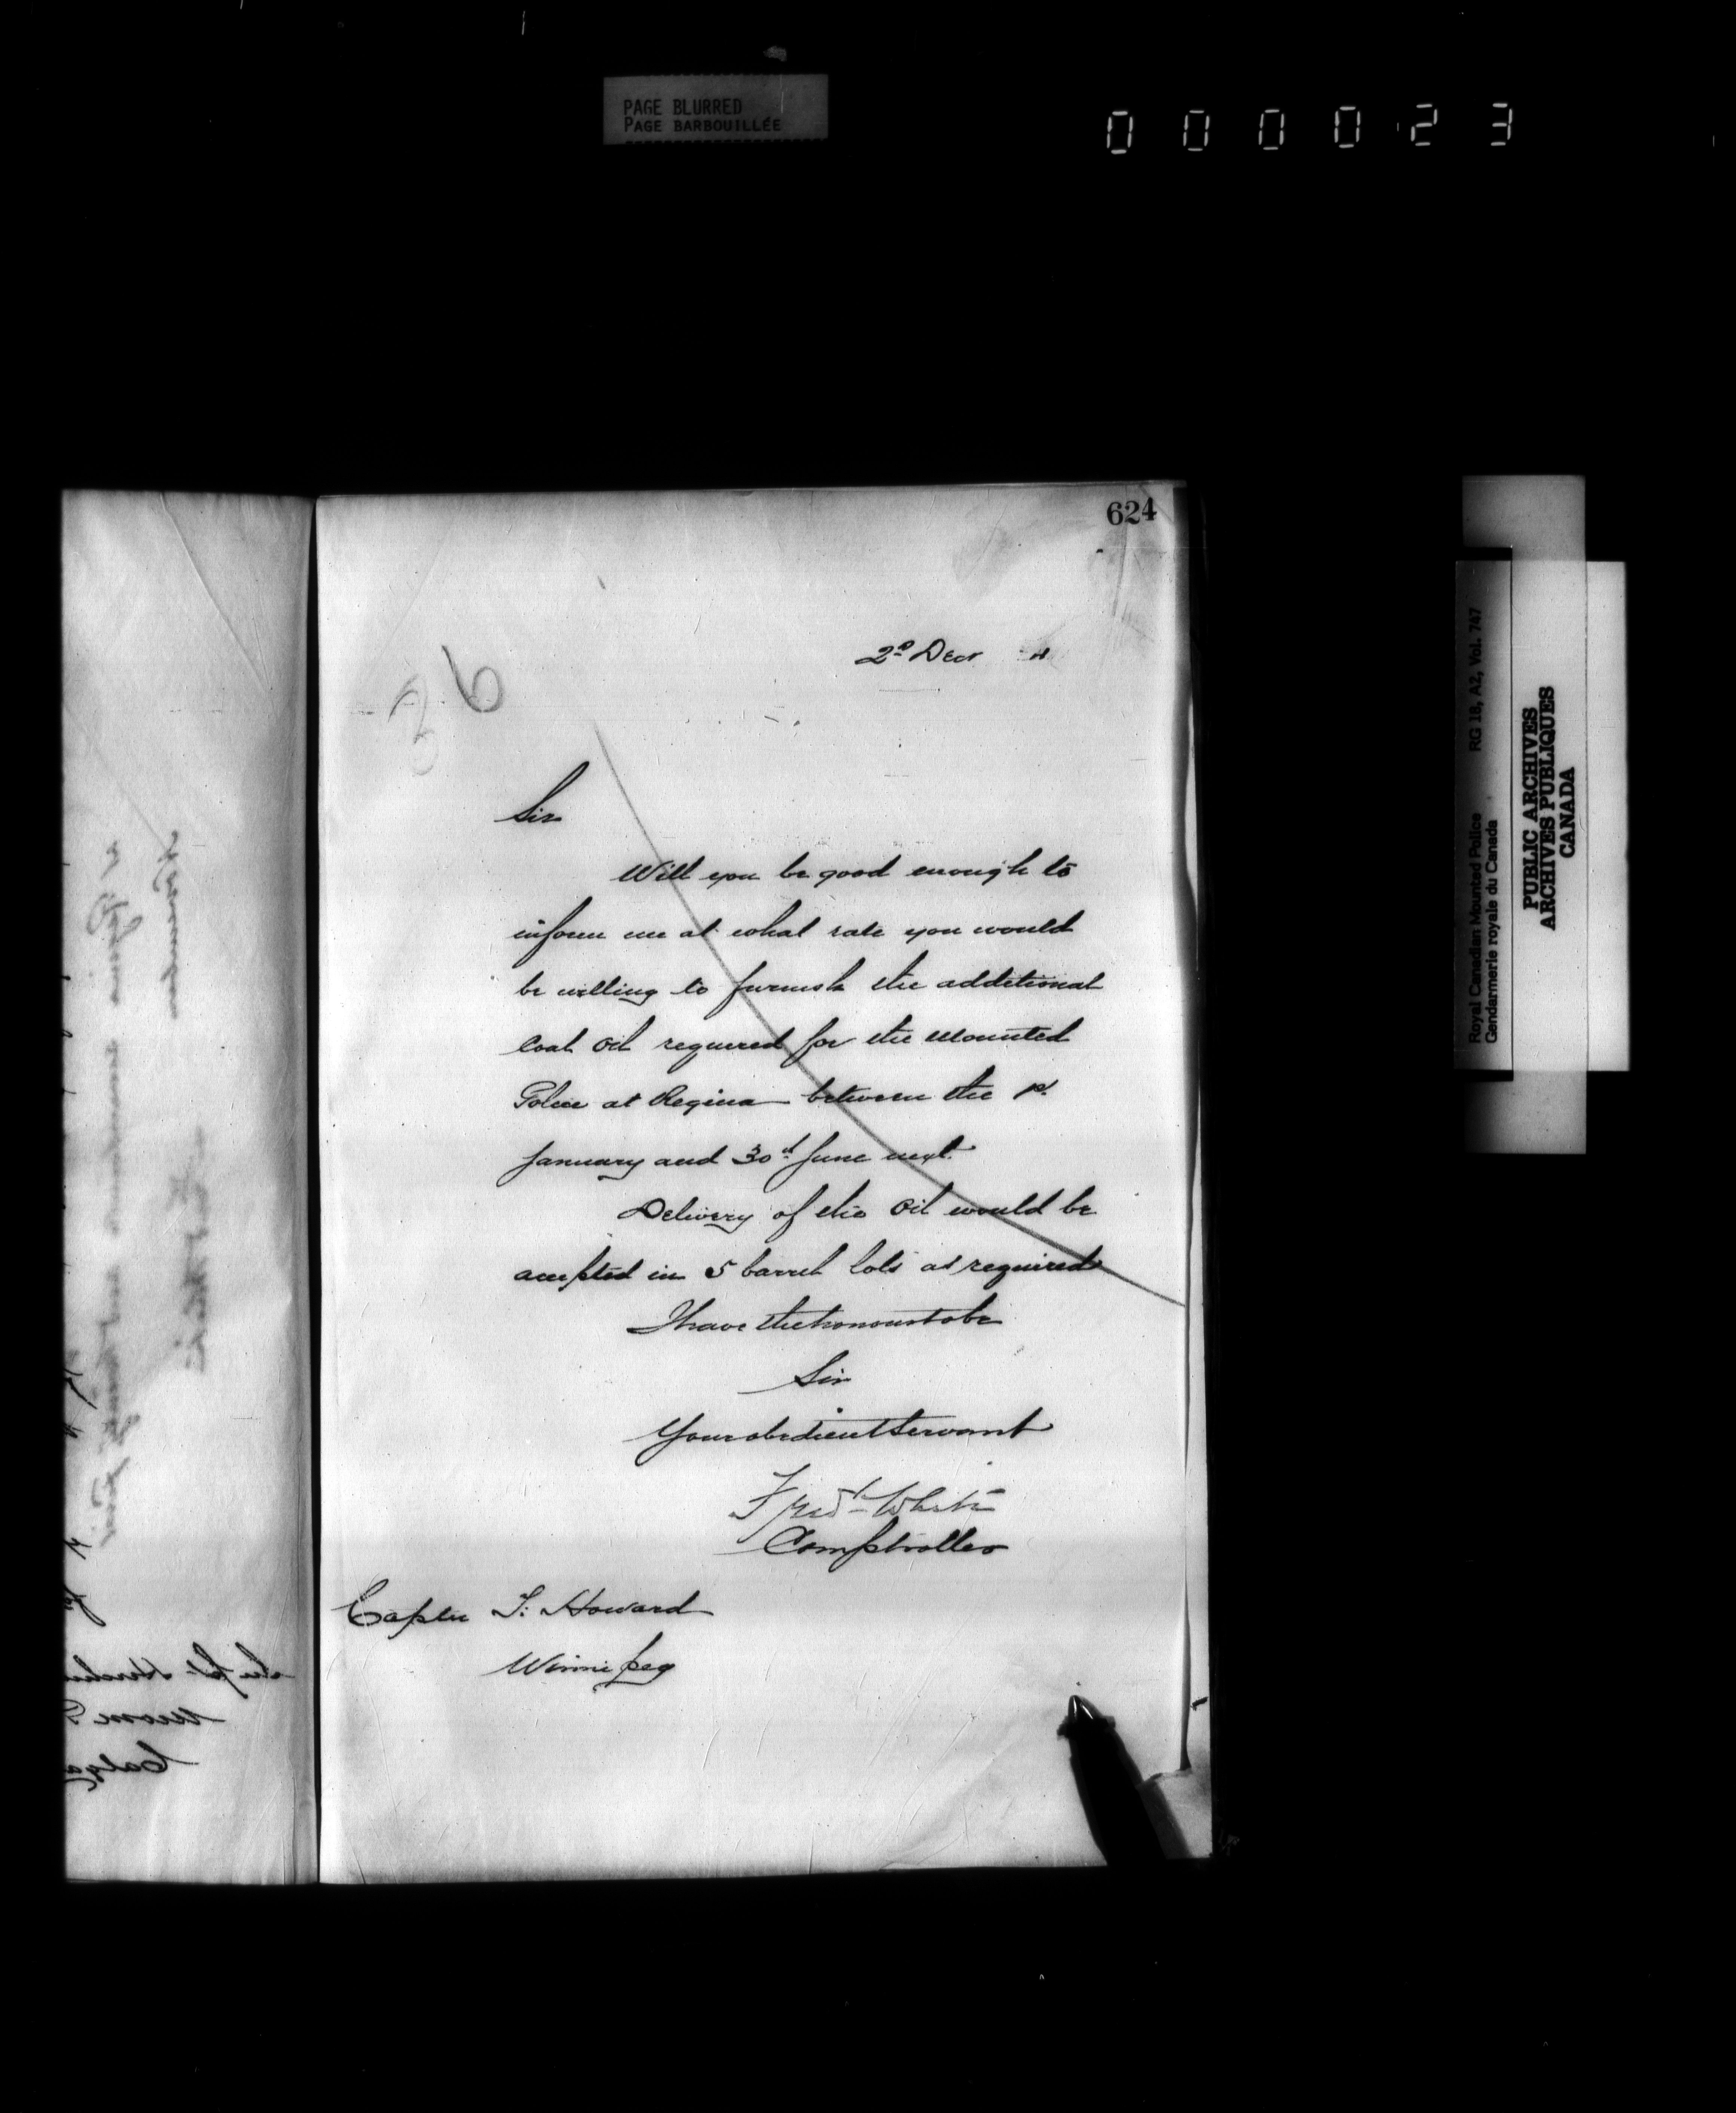 PAGE BLURRED
PAGE BARBOUILLÉE
0 0 0 0 2 3
624
2D Decr 4
Sir
Will you be good enough to
inform me at what rate you would
be willing to furnish the additional
Coal Oil required for the Mounted
Police at Regina between the 1st
January and 30th June next.
Delivery of the Oil would be
accepted in 5 barrel lots as required
I have the honour to be
Sir
Your obedient Servant
Fredk White
Comptroller
Captn T. Howard
Winnipeg
Royal Canadian Mounted Police RG 18, A2, Vol. 747
Gendarmerie royale du Canada
PUBLIC ARCHIVES
ARCHIVES PUBLIQUES
CANADA